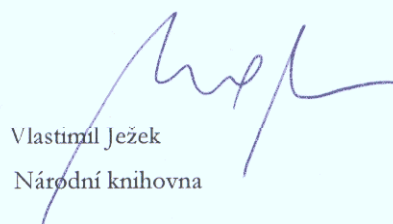 Vlastimil Ježek
Národní knihovna